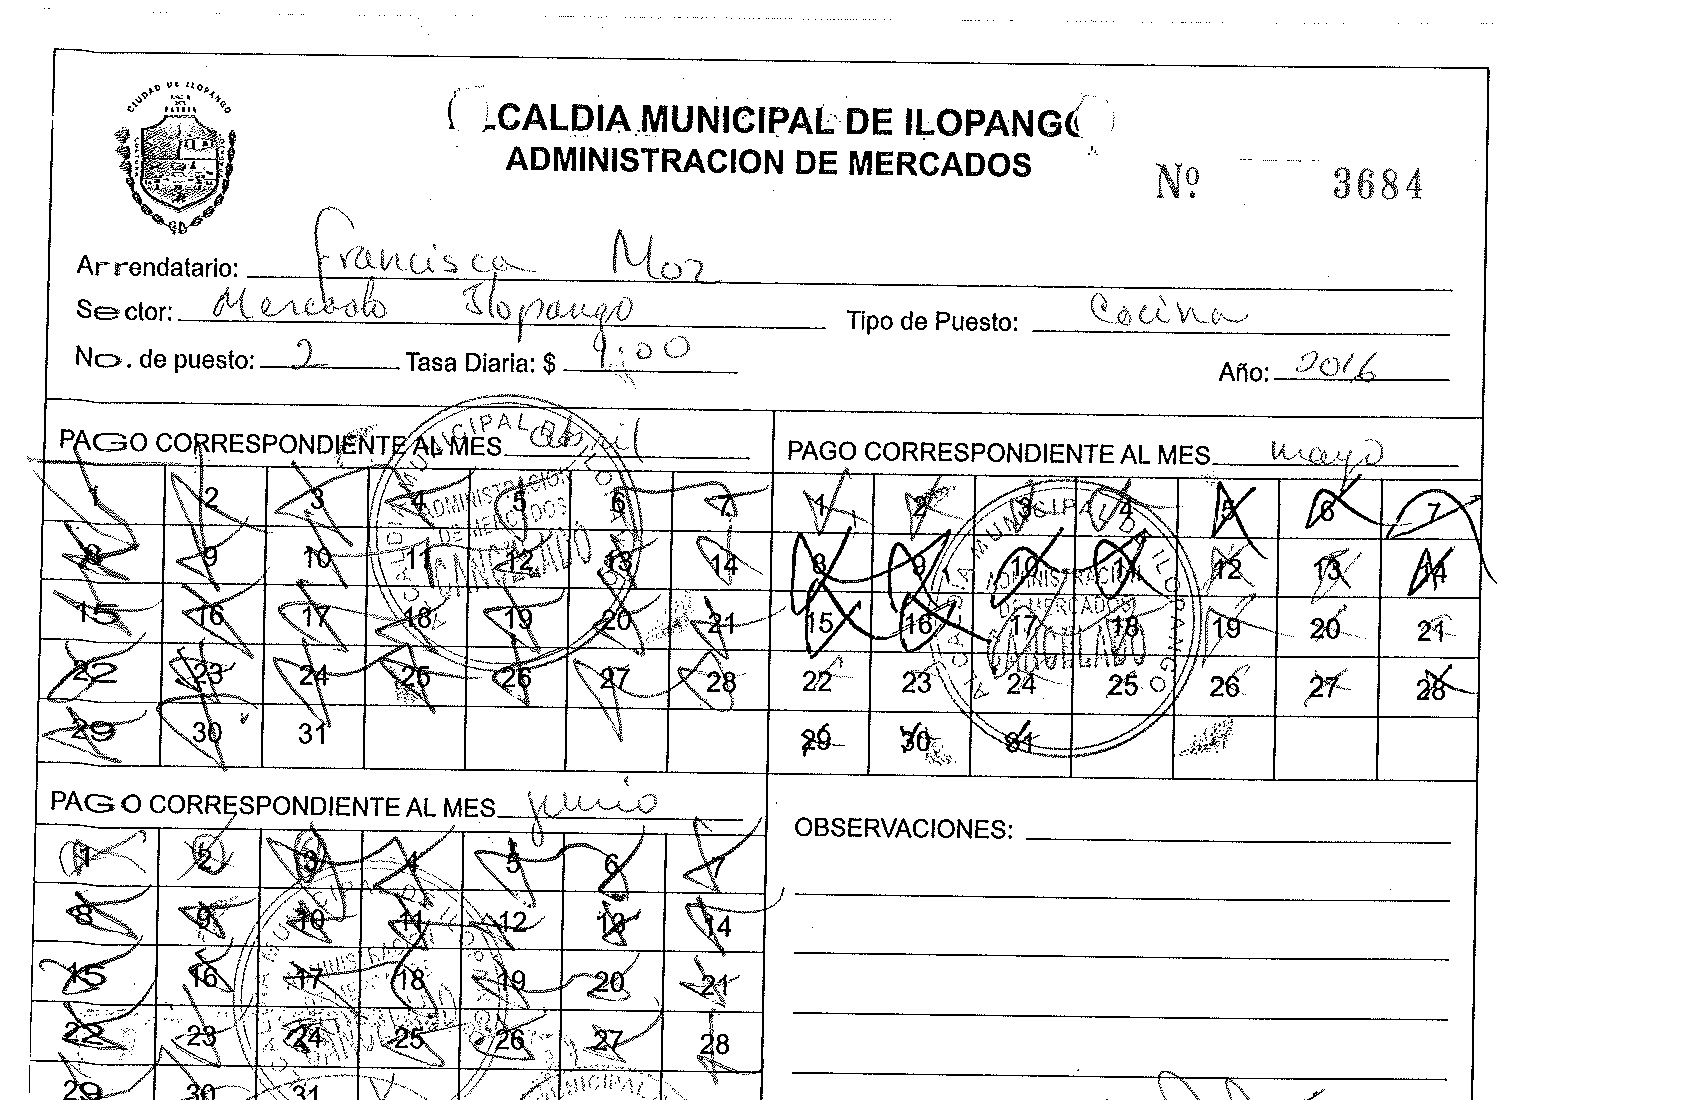 CIUDAD DE ILOPANGO
PATRIA
.CALDIA MUNICIPAL DE ILOPANGO
ADMINISTRACION DE MERCADOS
Nº 3684
Arrendatario: Francisca Moz
Sector: Mercado Ilopango Tipo de Puesto: Cocina
No. de puesto: 2 Tasa Diaria: $ 1:00 Año: 2016
PAGO CORRESPONDIENTE AL MES abril
1 2 3 4 5 6 7
8 9 10 11 12 13 14
15 16 17 18 19 20 21
22 23 24 25 26 27 28
29 30 31
ADMINISTRACION
DE MERCADOS
CANCELADO
PAGO CORRESPONDIENTE AL MES mayo
1 2 3 4 5 6 7
8 9 10 11 12 13 14
15 16 17 18 19 20 21
22 23 24 25 26 27 28
29 30 31
ALCALDIA MUNICIPAL DE ILOPANGO
ADMINISTRACION
DE MERCADOS
CANCELADO
PAGO CORRESPONDIENTE AL MES junio
1 2 3 4 5 6 7
8 9 10 11 12 13 14
15 16 17 18 19 20 21
22 23 24 25 26 27 28
29 30 31
MUNICIPAL
OBSERVACIONES: